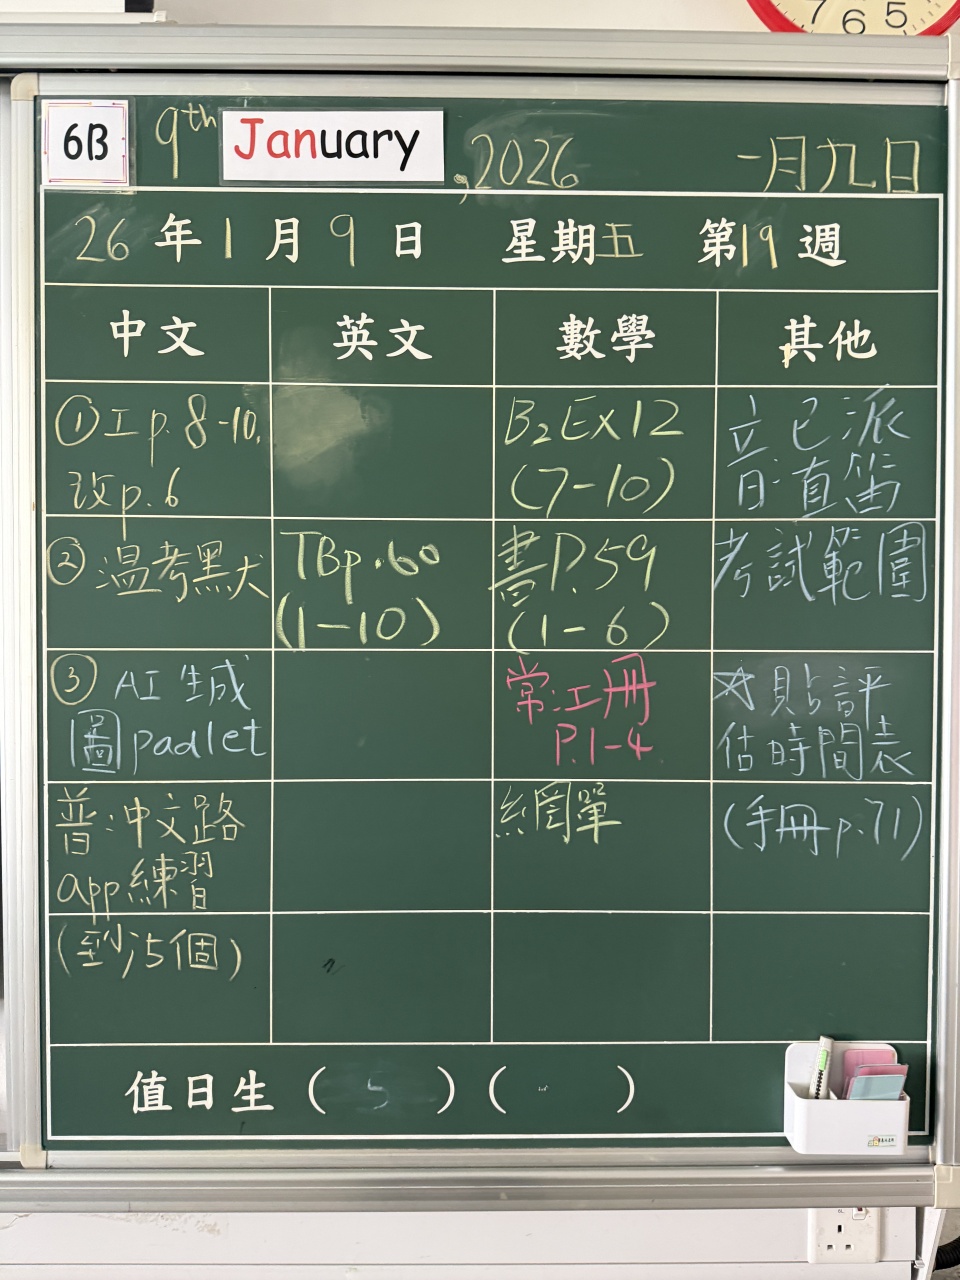 7 6 5
6B 9th January, 2026 一月九日
26年1月9日 星期五 第19週
中文 英文 數學 其他
①工p.8-10,
改p.6
B₂Ex12
(7-10)
立已派
音:直笛
②温考默
TBp.60
(1-10)
書P.59
(1-6)
考試範圍
③AI生成
圖padlet
常:工冊
P.1-4
☆貼評
估時間表
普:中文路
app練習
網單
(手冊p.71)
(到少5個)
值日生(5)( )